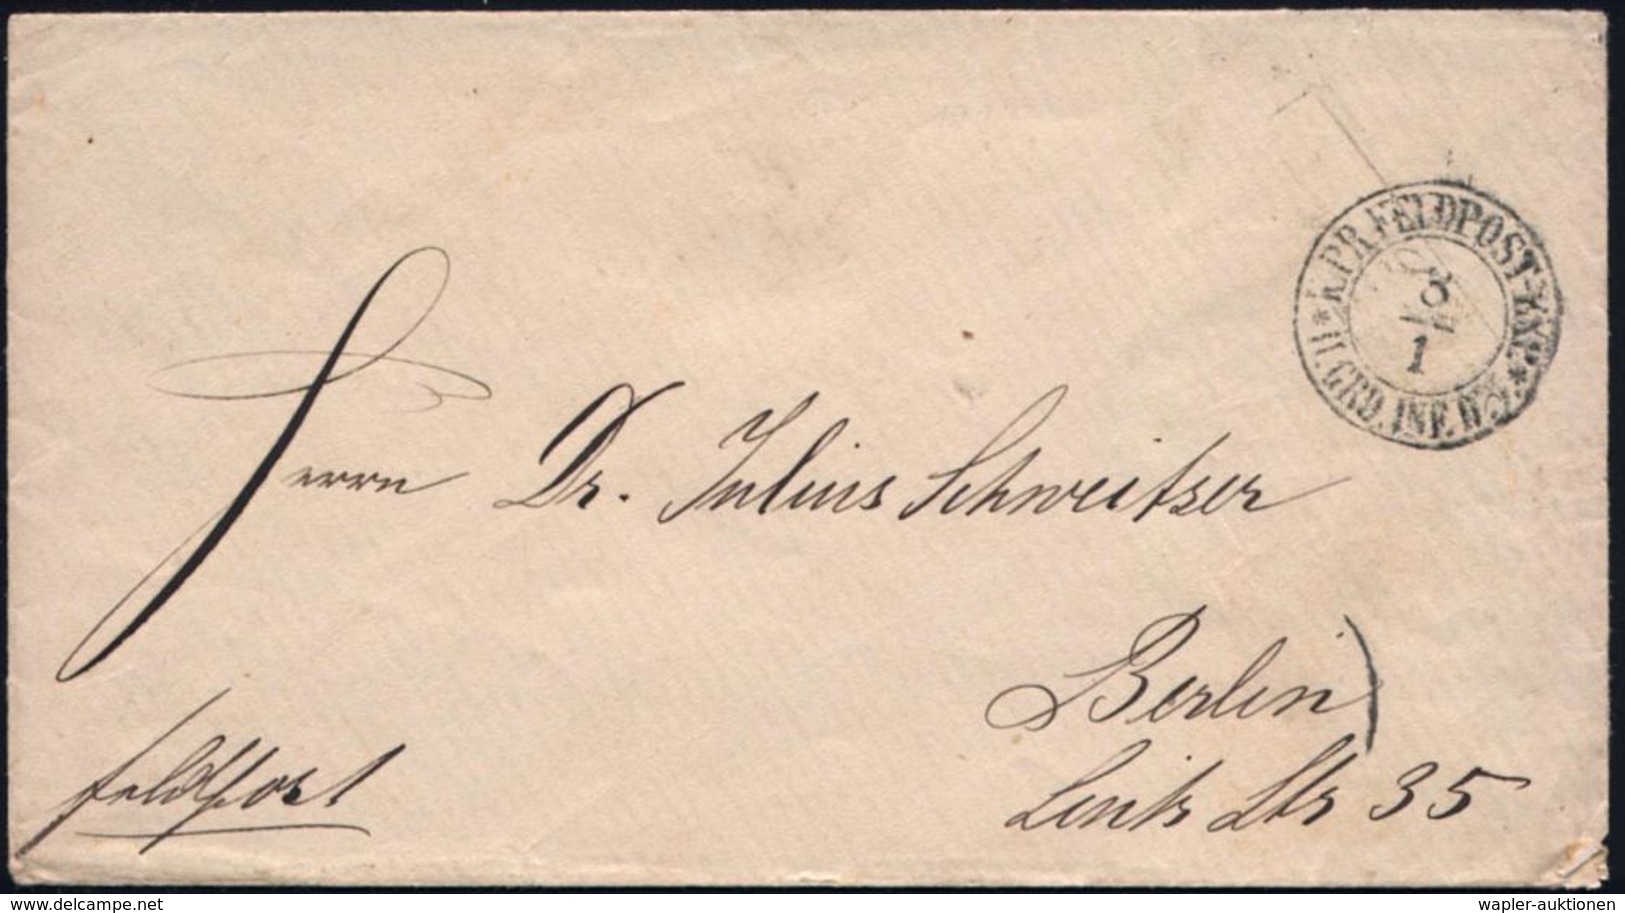 K.PR.FELDPOST-EXP.
1
* II. GRD. INF. *
Herrn Dr. Julius Schweitzer
Berlin
Link Str 35
feldpost
delcampe.net
wapler-auktionen